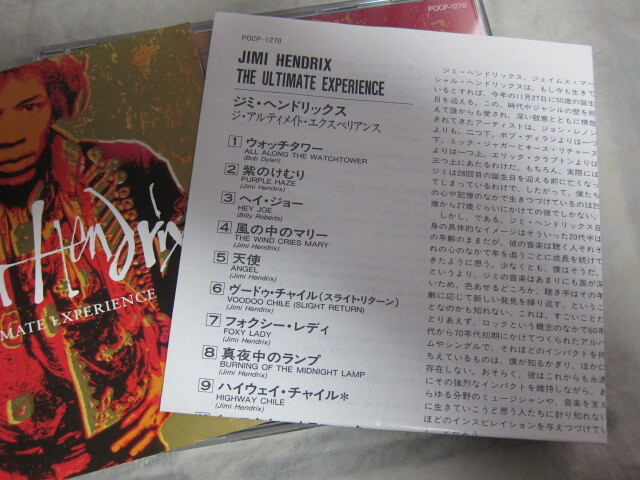 POCP-1270
POCP-1270
JIMI HENDRIX
THE ULTIMATE EXPERIENCE
ジミ・ヘンドリックス
ジ・アルティメイト・エクスペリアンス
1 ウォッチタワー
ALL ALONG THE WATCHTOWER
(Bob Dylan)
2 紫のけむり
PURPLE HAZE
(Jimi Hendrix)
3 ヘイ・ジョー
HEY JOE
(Billy Roberts)
4 風の中のマリー
THE WIND CRIES MARY
(Jimi Hendrix)
5 天使
ANGEL
(Jimi Hendrix)
6 ヴードゥ・チャイル(スライト・リターン)
VOODOO CHILE (SLIGHT RETURN)
(Jimi Hendrix)
7 フォクシー・レディ
FOXY LADY
(Jimi Hendrix)
8 真夜中のランプ
BURNING OF THE MIDNIGHT LAMP
(Jimi Hendrix)
9 ハイウェイ・チャイル*
HIGHWAY CHILE
(Jimi Hendrix)
ジミ・ヘンドリックス、ジェイムス・マー
シャル・ヘンドリックスは、もし今も生きて
いるとすれば、今年の11月27日に50歳の誕生
日を迎える。この、時代やジャンルの壁を超
えて誰からも愛され、深い敬意とともに模倣
されてきたアーティストは、ジョン・レノン
よりも、二つ下。ボブ・ディランよりは一つ
下。ミック・ジャガーとキース・リチャーズ
よりは一つ上。エリック・クラプトンよりは
三つ上にあたるわけだ。もちろん、実際には
ジミは28回目の誕生日を迎える前に亡くなっ
てしまっているわけで、したがって、僕たち
の心や記憶のなかで生きつづけているのは25
歳から27歳ぐらいにかけての彼でしかない。
しかし、である。ジミ・ヘンドリックス自
身の具体的なイメージはそういった20代半ば
の年齢のままだが、彼の音楽は聴く人それぞ
れの心のなかで年を追うごとに成長を続けて
きたように思う。少なくとも、僕はそうだ。
というより、ジミの音楽はあまりにも奥が深
いため、色あせるどころか、聴き手はその年
齢に応じて新しい発見を繰り返す。というこ
となのかも知れない。これは、すごいことだ
とりあえず、ロックという概念のなかで60年
代から70年代初期にかけてつくられたアルバ
ムやシングルで、それほどのインパクトを持
ちえているものは、僕が知るかぎり、ほかに
存在しない。おそらく、彼はこれからも永遠
にその強烈なインパクトを維持しながら、あ
らゆる分野のミュージシャンや、音楽を支え
に生きていこうと思う人たちに計り知れない
ほどのインスピレイションを与えつづけてい
Hendrix
IMATE EXPERIENCE